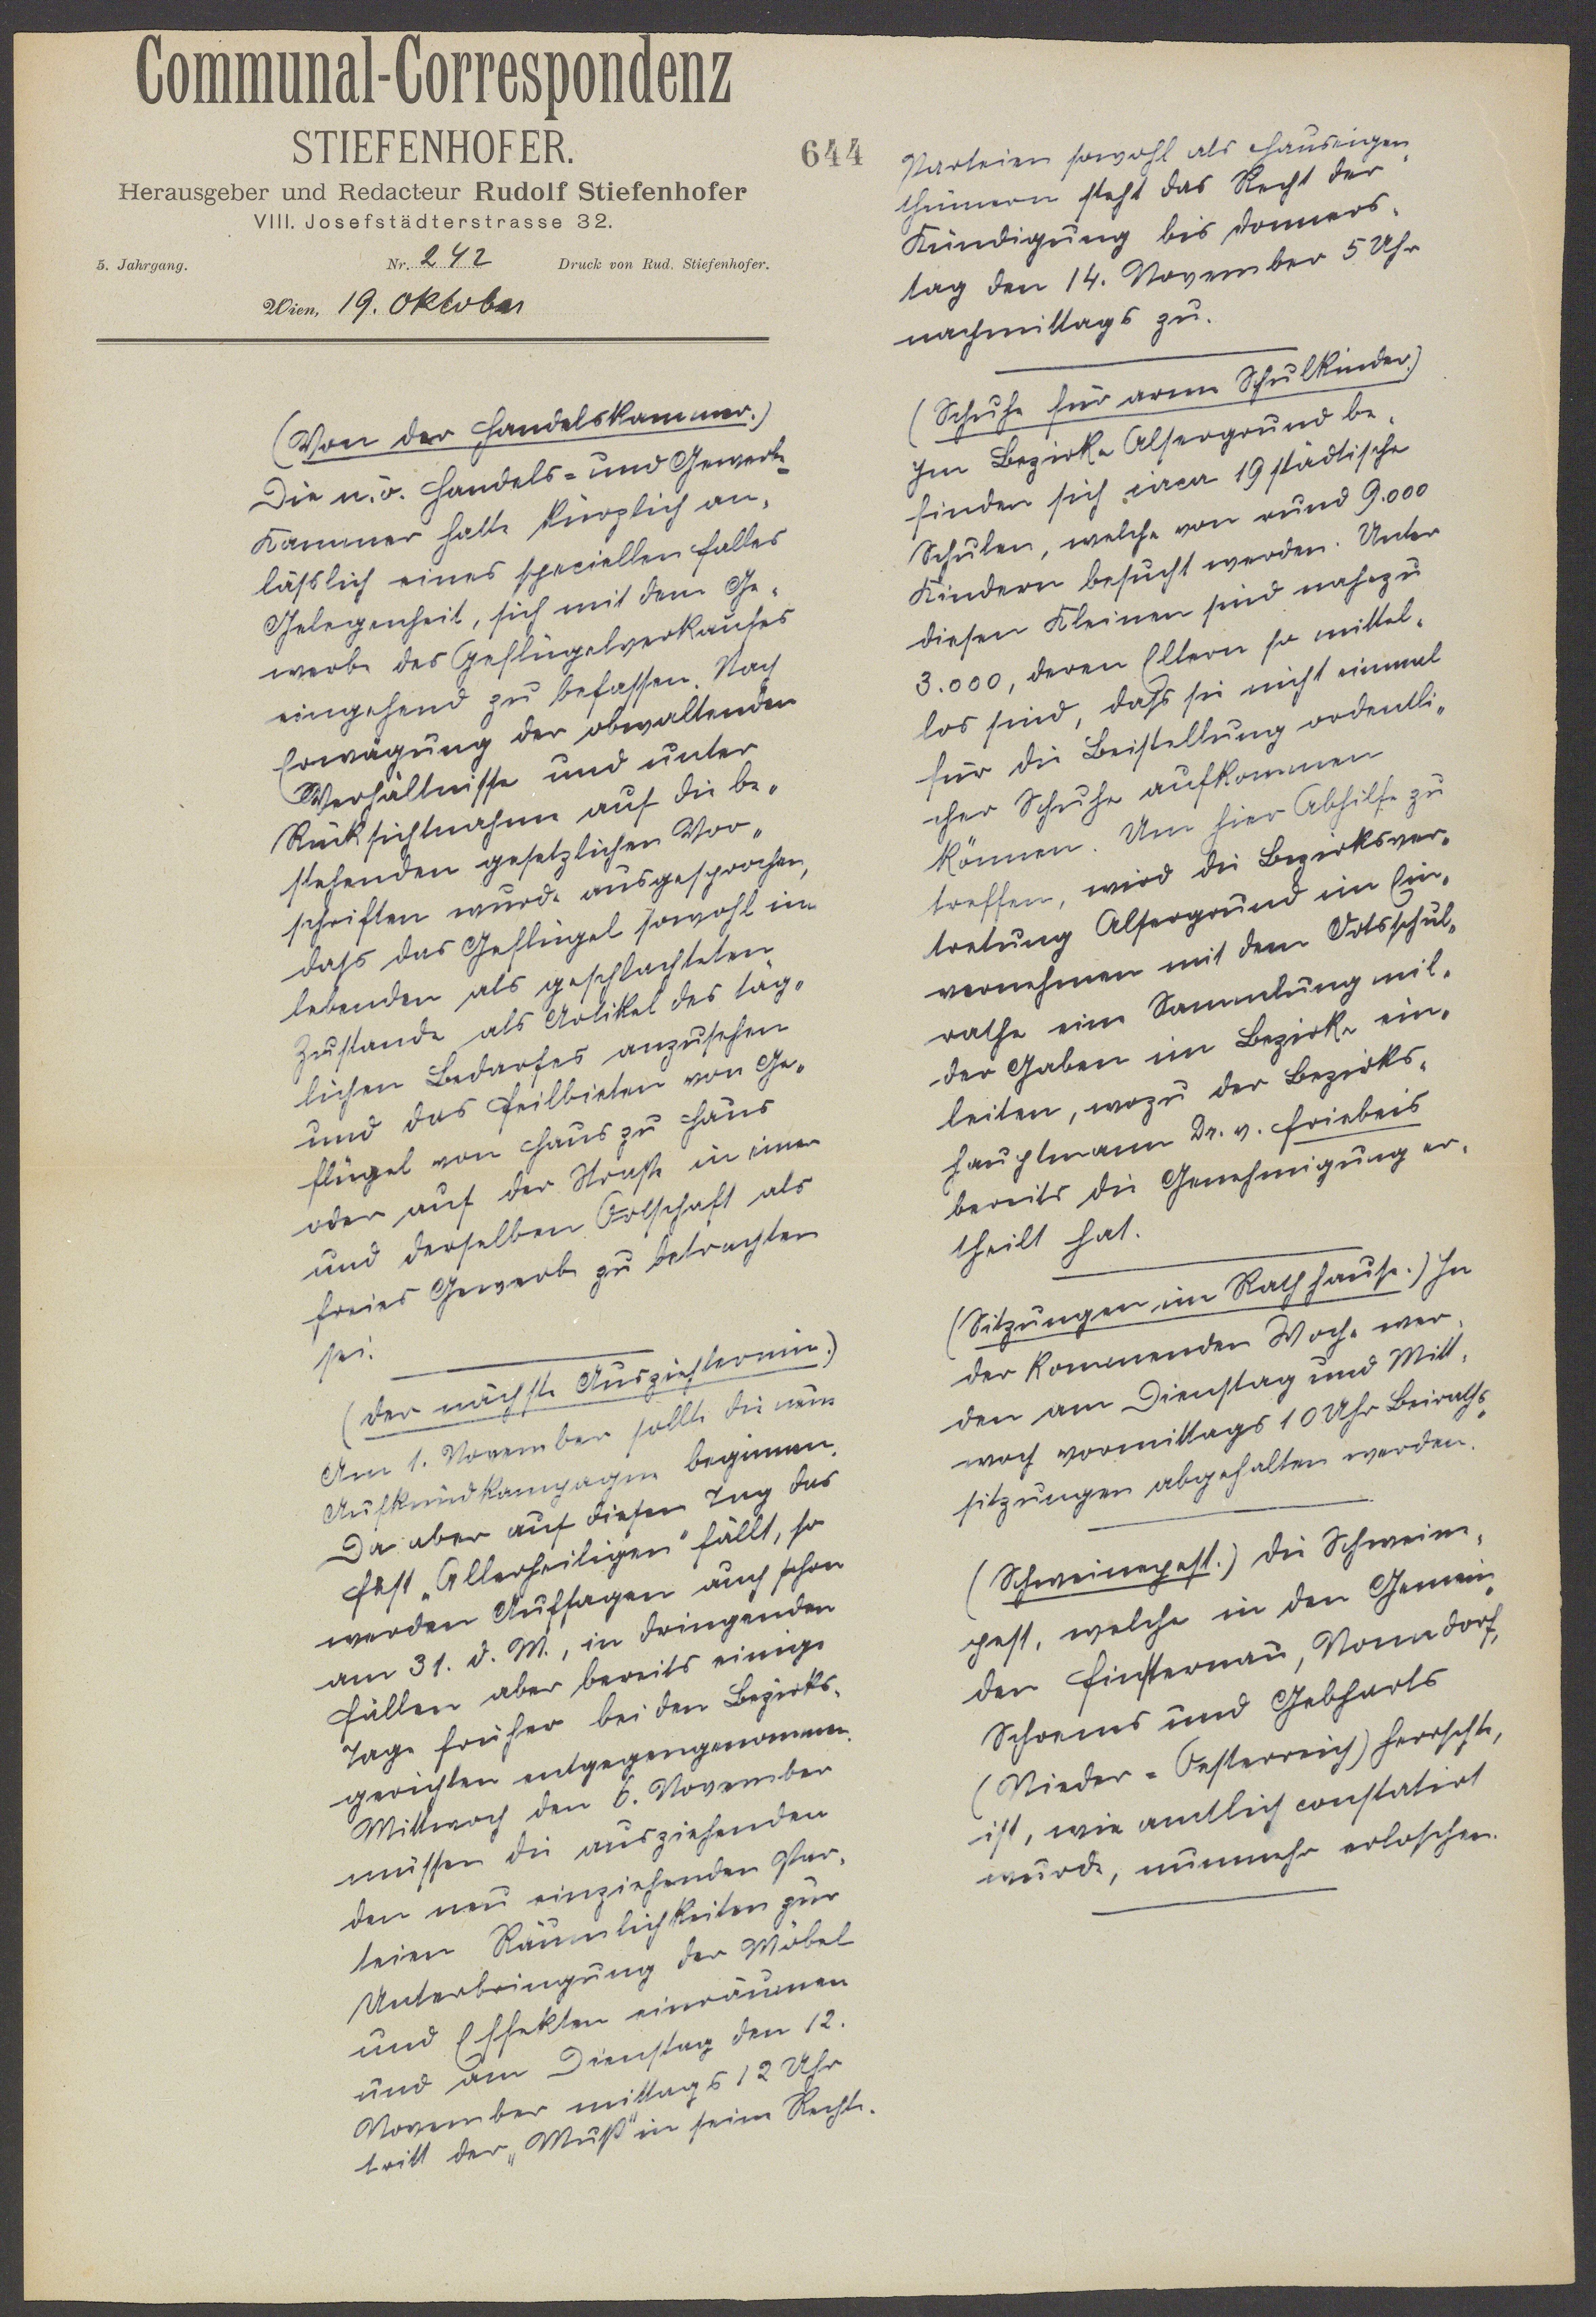 Communal-Correspondenz
STIEFENHOFER.
Herausgeber und Redacteur Rudolf Stiefenhofer
VIII. Josefstädterstrasse 32.
5. Jahrgang. Nr. 242 Druck von Rud. Stiefenhofer.
Wien, 19. Oktober
644
(Von der Handelskammer.)
Die n.ö. Handels= und Gewerbe-
Kammer hatte kürzlich an-
läßlich eines speciellen Falles
Gelegenheit, sich mit dem Ge-
werbe des Geflügelverkaufes
eingehend zu befassen. Nach
Erwägung der obwaltenden
Verhältnisse und unter
Rücksichtnahme auf die be-
stehenden gesetzlichen Vor-
schriften wurde ausgesprochen,
daß das Geflügel sowohl im
lebenden als geschlachteten
Zustande als Artikel des täg-
lichen Bedarfes anzusehen
und das Feilbieten von Ge-
flügel von Haus zu Haus
oder auf der Straße in einer
und derselben Ortschaft als
freies Gewerbe zu betrachten
sei.
(Der nächste Ausziehtermin.)
Am 1. November sollte die neue
Aufkündkampagne beginnen.
Da aber auf diesen Tag das
Fest „Allerheiligen" fällt, so
werden Aufsagen auch schon
am 31. d. M., in dringenden
Fällen aber bereits einige
Tage früher bei den Bezirks-
gerichten entgegengenommen.
Mittwoch den 6. November
müssen die ausziehenden
den neu einziehenden Par-
teien Räumlichkeiten zur
Unterbringung der Möbel
und Effekten einräumen
und am Dienstag den 12.
November mittags 12 Uhr
tritt der „Muß" in seine Rechte.
Parteien sowohl als Hauseigen-
thümern steht das Recht der
Kündigung bis Donners-
tag den 14. November 5 Uhr
nachmittags zu.
(Schuhe für arme Schulkinder.)
Im Bezirke Alsergrund be-
finden sich circa 19 städtische
Schulen, welche von rund 9.000
Kindern besucht werden. Unter
diesen Kleinen sind nahezu
3.000, deren Eltern so mittel-
los sind, daß sie nicht einmal
für die Beistellung ordentli-
cher Schuhe aufkommen
können. Um hier Abhilfe zu
treffen, wird die Bezirksver-
tretung Alsergrund im Ein-
vernehmen mit dem Ortsschul-
rathe eine Sammlung mil-
der Gaben im Bezirke ein-
leiten, wozu der Bezirks-
hauptmann Dr. v. Friebeis
bereits die Genehmigung er-
theilt hat.
(Sitzungen im Rathhause.) In
der kommenden Woche wer-
den am Dienstag und Mitt-
woch vormittags 10 Uhr Beiraths-
sitzungen abgehalten werden.
(Schweinepest.) Die Schweine-
pest, welche in den Gemein-
den Finsternau, Nonndorf,
Schrems und Gebharts
(Nieder=Oesterreich) herrschte,
ist, wie amtlich constatirt
wurde, nunmehr erloschen.